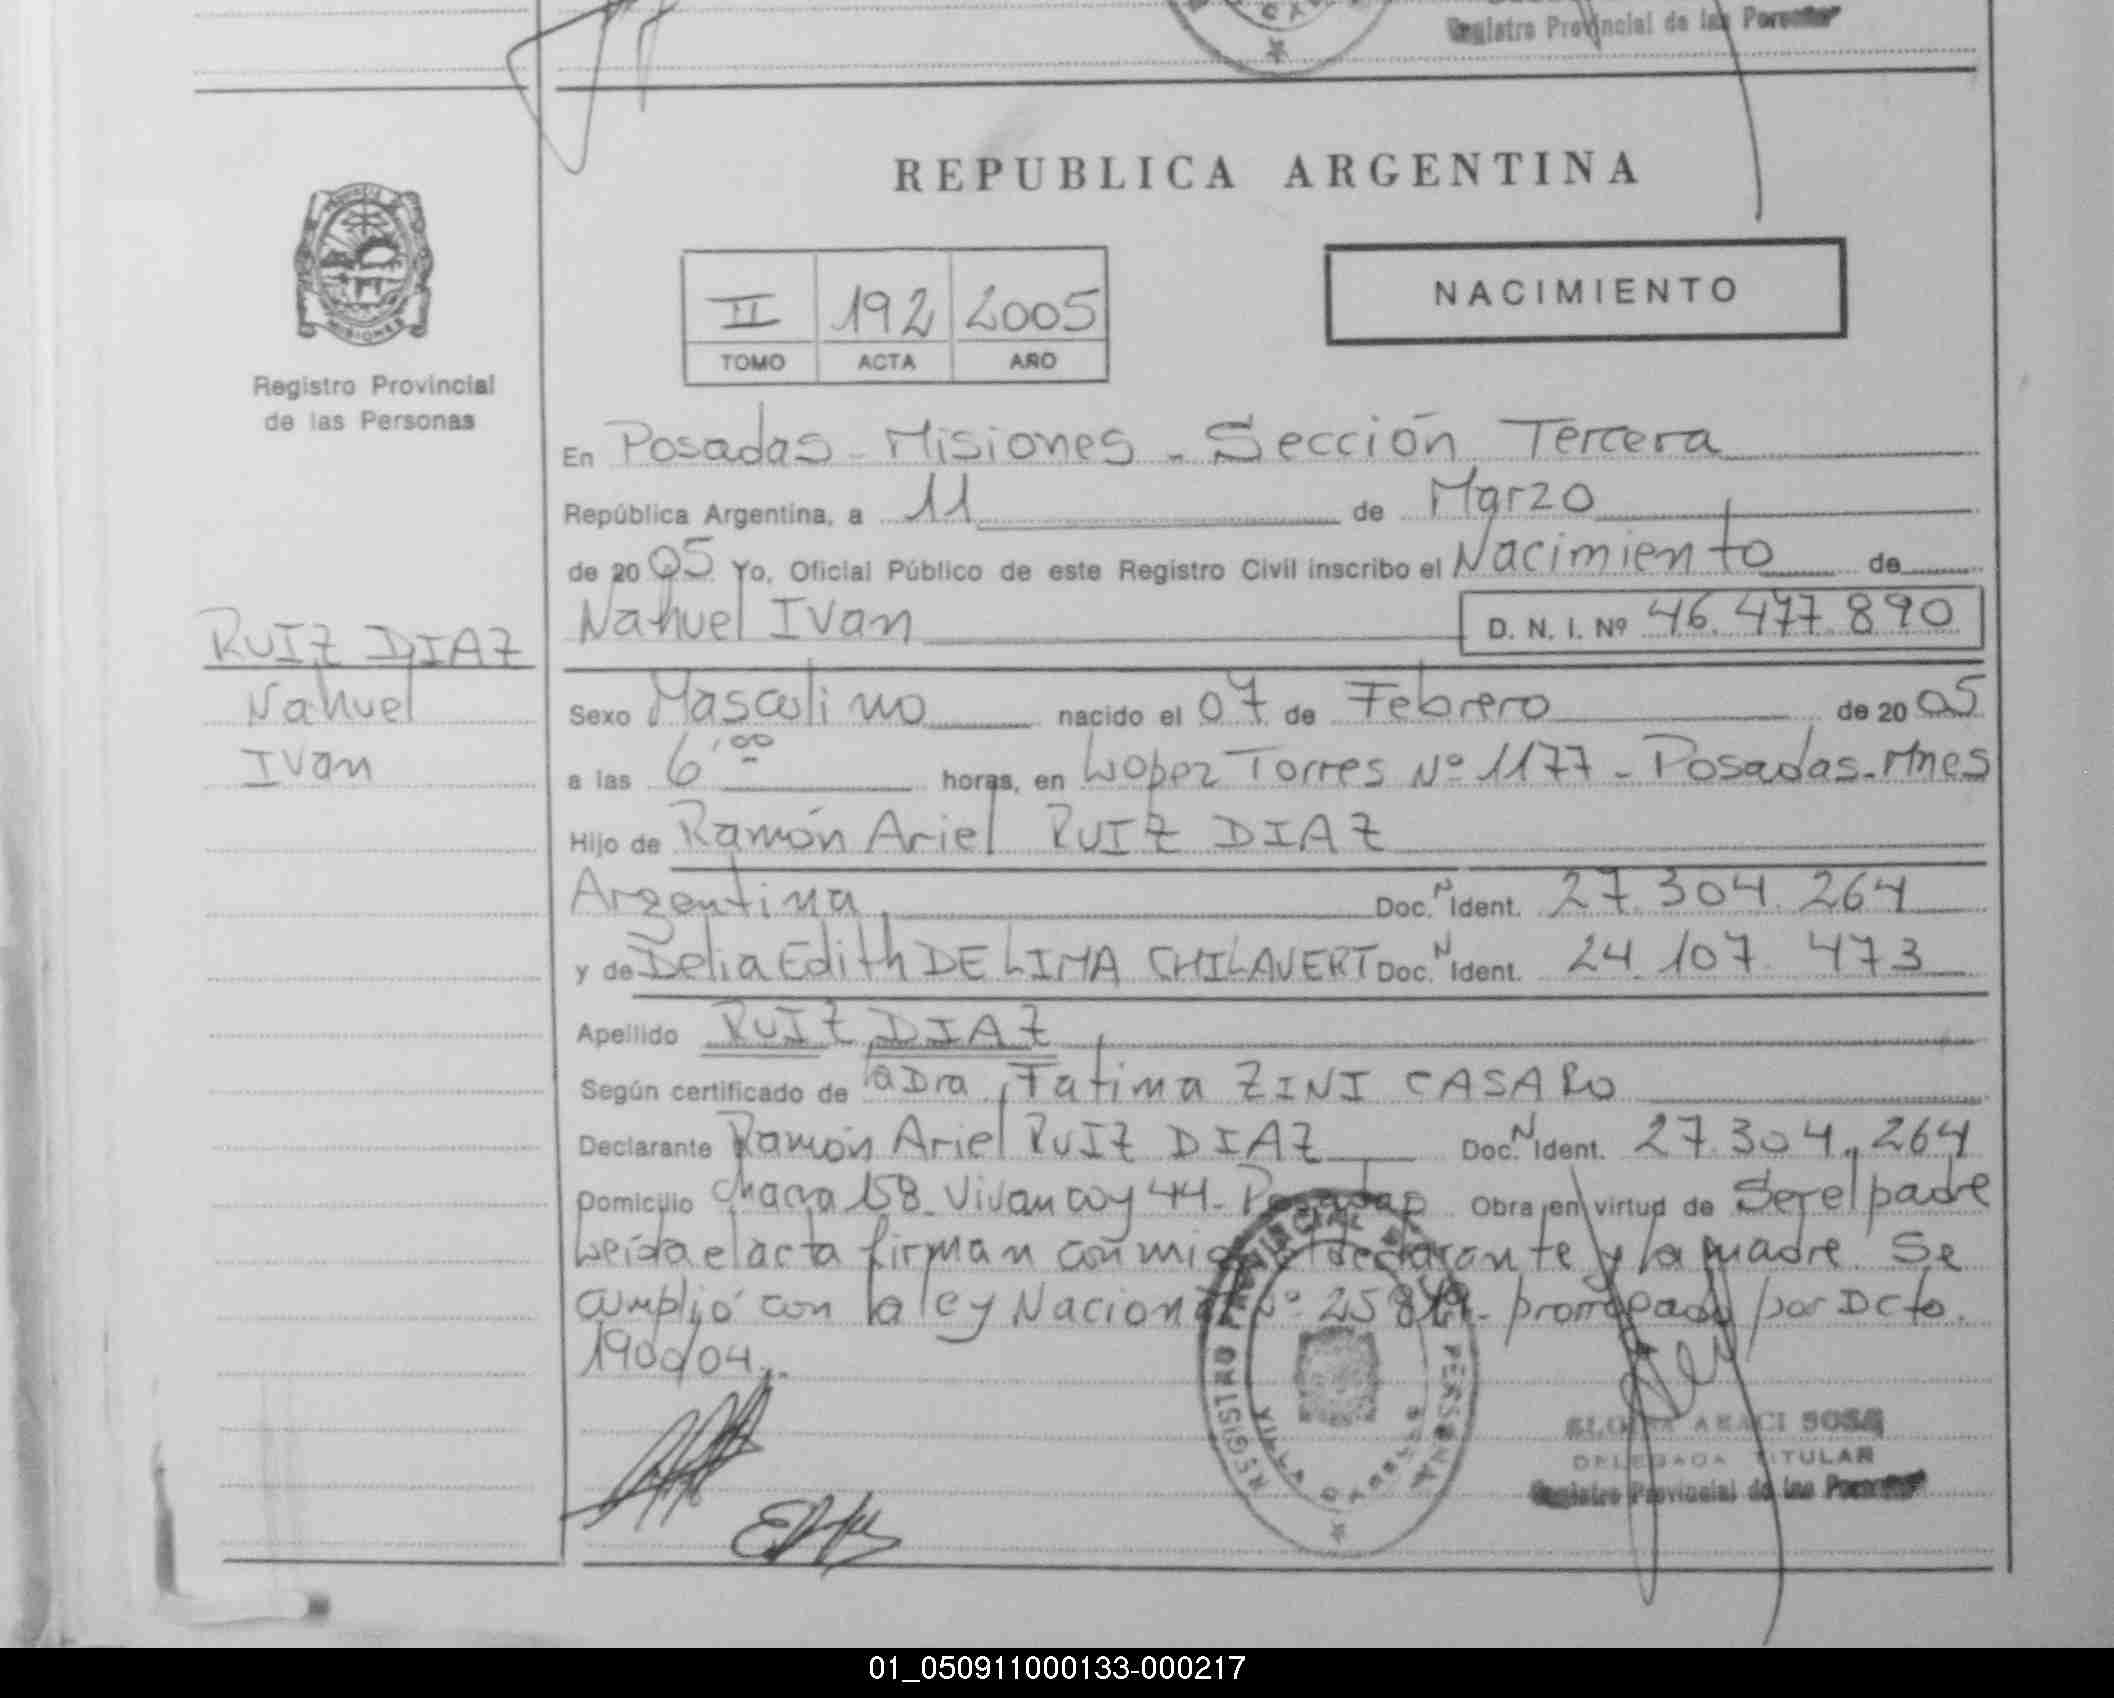 Registro Provincial de las Personas
REPUBLICA ARGENTINA
MISIONES
Registro Provincial
de las Personas
II 192 2005
TOMO ACTA AÑO
NACIMIENTO
En Posadas - Misiones - Sección Tercera
República Argentina, a 11 de Marzo
de 2005 Yo, Oficial Público de este Registro Civil inscribo el Nacimiento de
Nahuel Ivan D. N. I. Nº 46.477.890
RUIZ DIAZ
Nahuel
Ivan
Sexo Masculino nacido el 07 de Febrero de 2005
a las 6,00 horas, en Lopez Torres Nº 1177 - Posadas - Mnes
Hijo de Ramón Ariel RUIZ DIAZ
Argentina Doc. N Ident. 27.304.264
y de Delia Edith DE LIMA CHILAVERT Doc. N Ident. 24.107.473
Apellido RUIZ DIAZ
Según certificado de la Dra. Fatima ZINI CASARO
Declarante Ramón Ariel RUIZ DIAZ Doc. N Ident. 27.304.264
Domicilio chacra 158 - Vivan coy 44 - Posadas Obra en virtud de Ser el padre
Leída el acta firman con migo declarante y la madre. Se
cumplió con la ley Nacional Nº por Dcto.
1900/04.
REGISTRO PROVINCIAL PERSONAS
VILLA
SOSA
DELEGADA TITULAR
Registro Provincial de las Personas
01_050911000133-000217